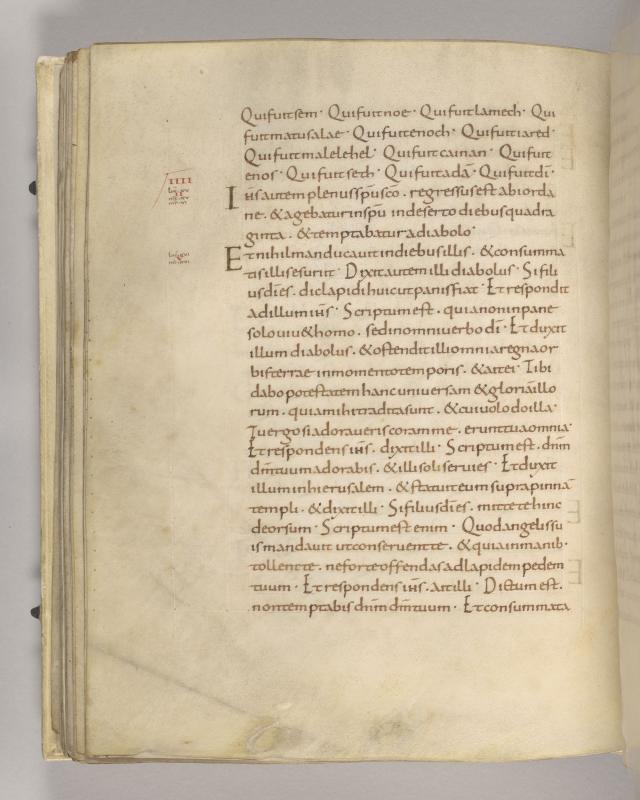 Quifuitsem · Quifuitnoe · Quifuitlamech · Qui
fuitmatusalae · Quifuitenoch · Quifuitiared ·
Quifuitmalelehel · Quifuitcainan · Quifuit
enos · Quifuitseth · Quifuitadā · Quifuitdī ·
IIII
Ihsautemplenusspusco . regressusestabiorda
ne . &agebaturinspu indesertodiebusquadra
ginta . &temptabaturadiabolo ·
Etnihilmanducauitindiebusillis . &consumma
tisillisesuriit · Dixitautemillidiabolus · Sifili
usdiēs . diclapidihuicutpanisfiat · Etrespondit
adillumihs · Scriptumest . quianoninpane
solouiu&homo . sedinomniuerbodī · Etduxit
illumdiabolus . &ostenditilliomniaregnaor
bisterrae inmomentotemporis . &aitei · Tibi
dabopotestatemhancuniuersam &gloriāillo
rum . quiamihitraditasunt . &cuiuolodoilla ·
Tuergosiadoraueriscoramme . erunttuaomnia ·
Etrespondensihs . dixitilli · Scriptumest . dnm
dmtuumadorabis . &illisoliseruies · Etduxit
illuminhierusalem . &statuiteumsuprapinnā
templi . &dixitilli · Sifiliusdiēs . mittetehinc
deorsum · Scriptumestenim · Quodangelissu
ismandauit utconseruentte . &quiainmanib·
tollentte . neforteoffendasadlapidempedem
tuum · Etrespondensihs . aitilli · Dictumest .
nontemptabisdnmdmtuum · Etconsummata